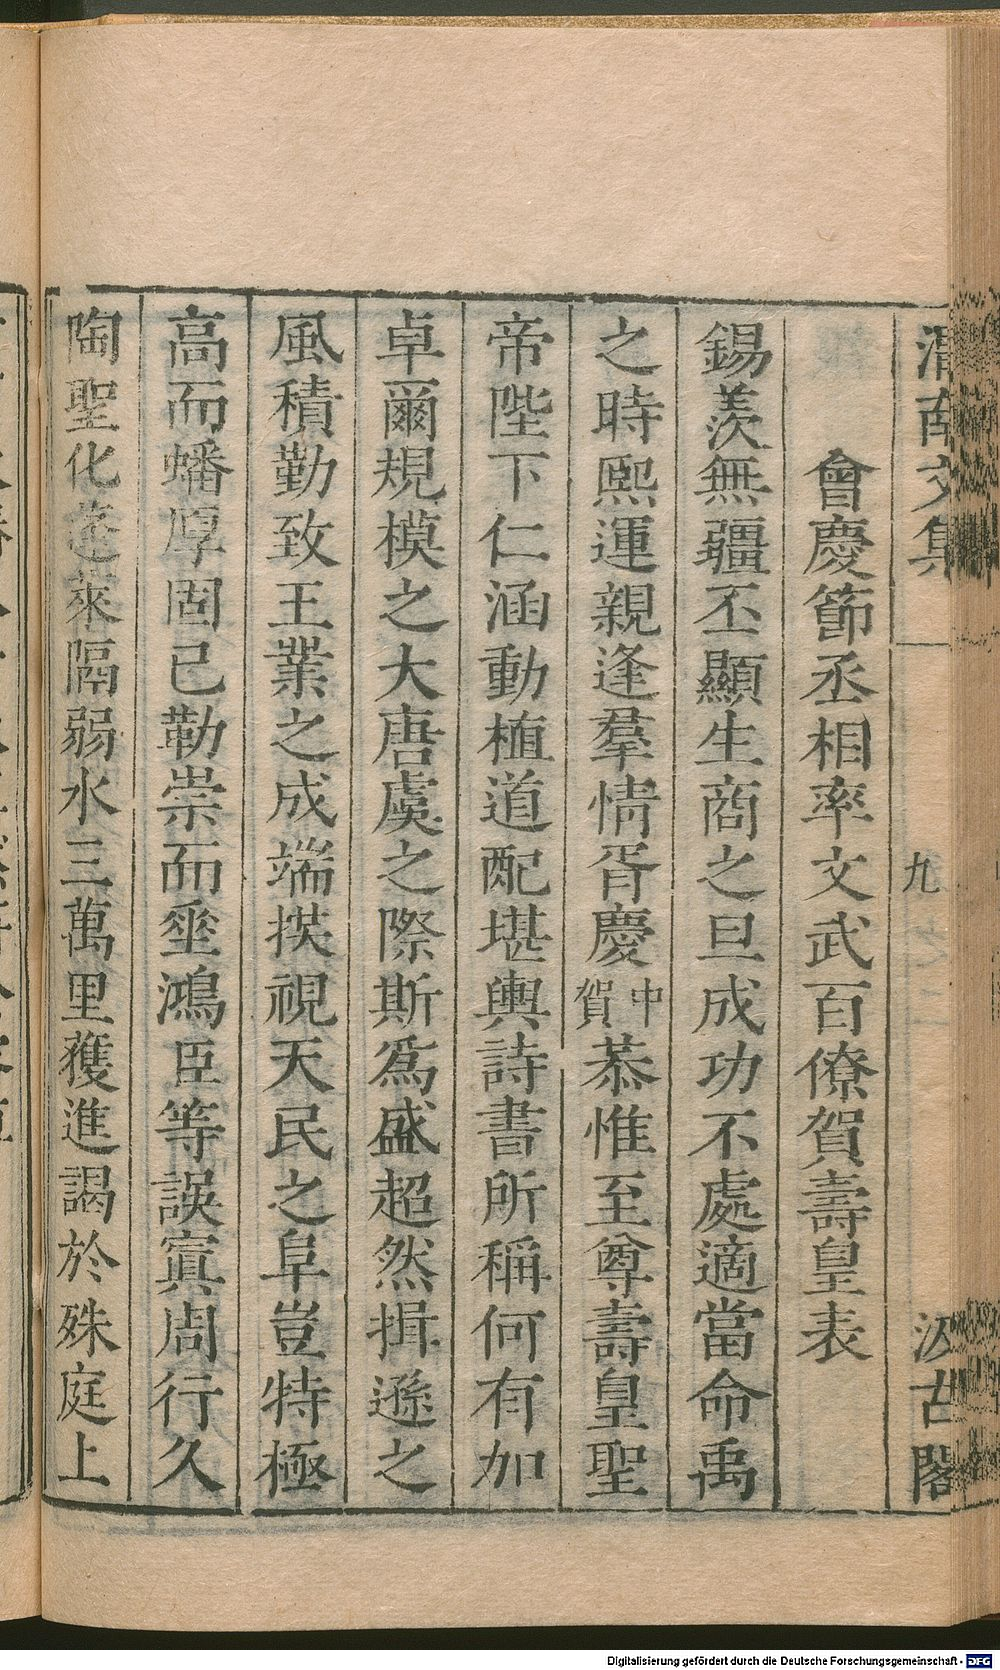 渭南文集
九
汲古閣
會慶節丞相率文武百僚賀壽皇表
錫羨無疆丕顯生商之旦成功不處適當命禹
之時熙運親逢羣情胥慶中賀恭惟至尊壽皇聖
帝陛下仁涵動植道配堪輿詩書所稱何有加
卓爾規模之大唐虞之際斯爲盛超然揖遜之
風積勤致王業之成端拱視天民之阜豈特極
高而蟠厚固已勒崇而垂鴻臣等誤寘周行久
陶聖化蓬萊隔弱水三萬里獲進謁於殊庭上
Digitalisierung gefördert durch die Deutsche Forschungsgemeinschaft - DFG